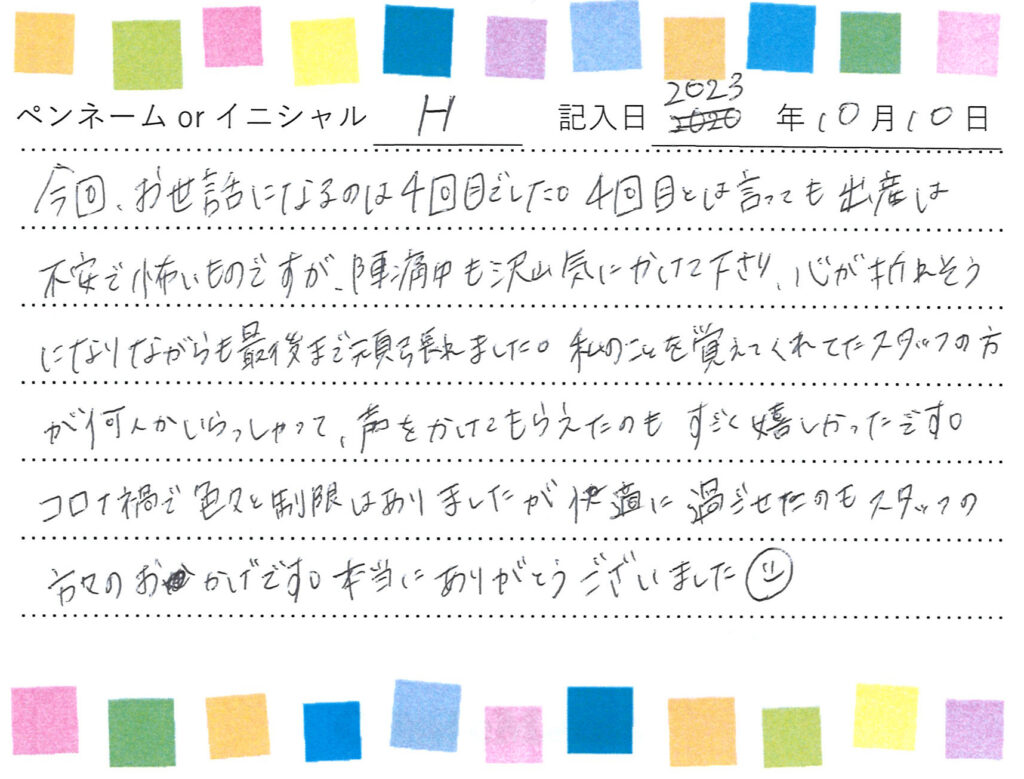 ペンネーム or イニシャル H 記入日 2023 2020 年 10月10日
今回、お世話になるのは4回目でした。4回目とは言っても出産は
不安で怖いものですが、陣痛中も沢山気にかけて下さり、心が折れそう
になりながらも最後まで頑張れました。私のことを覚えてくれてたスタッフの方
が何人かいらっしゃって、声をかけてもらえたのもすごく嬉しかったです。
コロナ禍で色々と制限はありましたが快適に過ごせたのもスタッフの
方々のおかげです。本当にありがとうございました